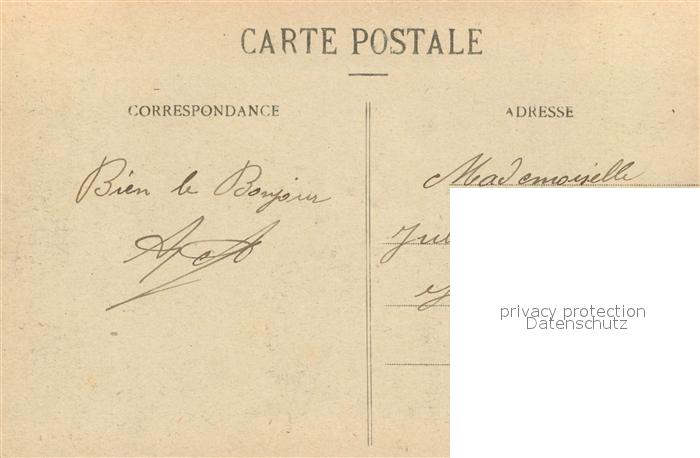 CARTE POSTALE
CORRESPONDANCE
ADRESSE
Bien le Bonjour
Mademoiselle
privacy protection
Datenschutz